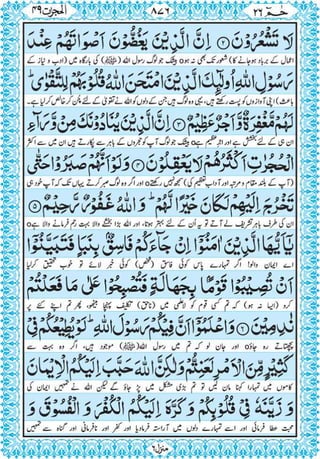 الحجرات ٤٩
٨٧٦
حٰمٓ ٢٦
لَا تَشْعُرُوْنَ ۝۲ اِنَّ الَّذِيْنَ يَغُضُّوْنَ اَصْوَاتَهُمْ عِنْدَ
اعمال کے برباد ہو جانے کا) شعور بھی نہ ہو ہ بیشک جو لوگ رسول اللہ کی بارگاہ میں (ادب و نیاز کے
رَسُوْلِ اللّٰهِ اُولٰٓئِكَ الَّذِيْنَ امْتَحَنَ اللّٰهُ قُلُوْبَهُمْ لِلتَّقْوٰى ؕ
باعث) اپنی آوازوں کو پست رکھتے ہیں، یہی وہ لوگ ہیں جن کے دلوں کو اللہ نے تقویٰ کے لئے چُن کر خالص کر لیا ہے۔
لَهُمْ مَّغْفِرَةٌ وَّاَجْرٌ عَظِيْمٌ ۝۳ اِنَّ الَّذِيْنَ يُنَادُوْنَكَ مِنْ وَّرَآءِ
ان ہی کے لئے بخشش ہے اور اجرِ عظیم ہے ہ بیشک جو لوگ آپ کو حجروں کے باہر سے پکارتے ہیں ان میں سے اکثر
الْحُجُرٰتِ اَكْثَرُهُمْ لَا يَعْقِلُوْنَ ۝۴ وَلَوْ اَنَّهُمْ صَبَرُوْا حَتّٰى
(آپ کے بلند مقام و مرتبہ اور آدابِ تعظیم کی) سمجھ نہیں رکھتے ہ اور اگر وہ لوگ صبر کرتے یہاں تک کہ آپ خود ہی
تَخْرُجَ اِلَيْهِمْ لَكَانَ خَيْرًا لَّهُمْ ؕ وَاللّٰهُ غَفُوْرٌ رَّحِيْمٌ ۝۵
ان کی طرف باہر تشریف لے آتے تو یہ اُن کے لئے بہتر ہوتا، اور اللہ بڑا بخشنے والا بہت رحم فرمانے والا ہے ہ
يٰٓاَيُّهَا الَّذِيْنَ اٰمَنُوْٓا اِنْ جَآءَكُمْ فَاسِقٌۢ بِنَبَاٍ فَتَبَيَّنُوْٓا
اے ایمان والو! اگر تمہارے پاس کوئی فاسق (شخص) کوئی خبر لائے تو خوب تحقیق کر لیا
اَنْ تُصِيْبُوْا قَوْمًۢا بِجَهَالَةٍ فَتُصْبِحُوْا عَلٰى مَا فَعَلْتُمْ
کرو (ایسا نہ ہو) کہ تم کسی قوم کو لاعلمی میں (ناحق) تکلیف پہنچا بیٹھو، پھر تم اپنے کئے پر
نٰدِمِيْنَ ۝۶ وَاعْلَمُوْٓا اَنَّ فِيْكُمْ رَسُوْلَ اللّٰهِ ؕ لَوْ يُطِيْعُكُمْ فِيْ
پچھتاتے رہ جاؤ ہ اور جان لو کہ تم میں رسول اللہ موجود ہیں، اگر وہ بہت سے
كَثِيْرٍ مِّنَ الْاَمْرِ لَعَنِتُّمْ وَلٰكِنَّ اللّٰهَ حَبَّبَ اِلَيْكُمُ الْاِيْمَانَ
کاموں میں تمہارا کہنا مان لیں تو تم بڑی مشکل میں پڑ جاؤ گے لیکن اللہ نے تمہیں ایمان کی
وَزَيَّنَهٗ فِيْ قُلُوْبِكُمْ وَكَرَّهَ اِلَيْكُمُ الْكُفْرَ وَالْفُسُوْقَ وَ
محبت عطا فرمائی اور اسے تمہارے دلوں میں آراستہ فرما دیا اور کفر اور نافرمانی اور گناہ سے تمہیں
منزل ٦